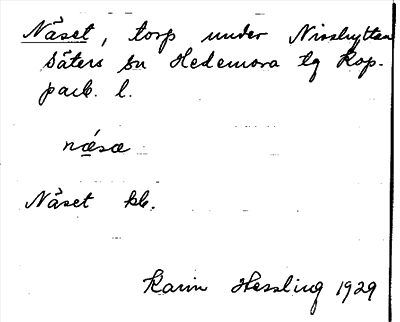 Näset, torp under Nisshyttan
Säters sn Hedemora tg Kop-
parb. l.
nǽsæ
Näset kb.
Karin Hessling 1929